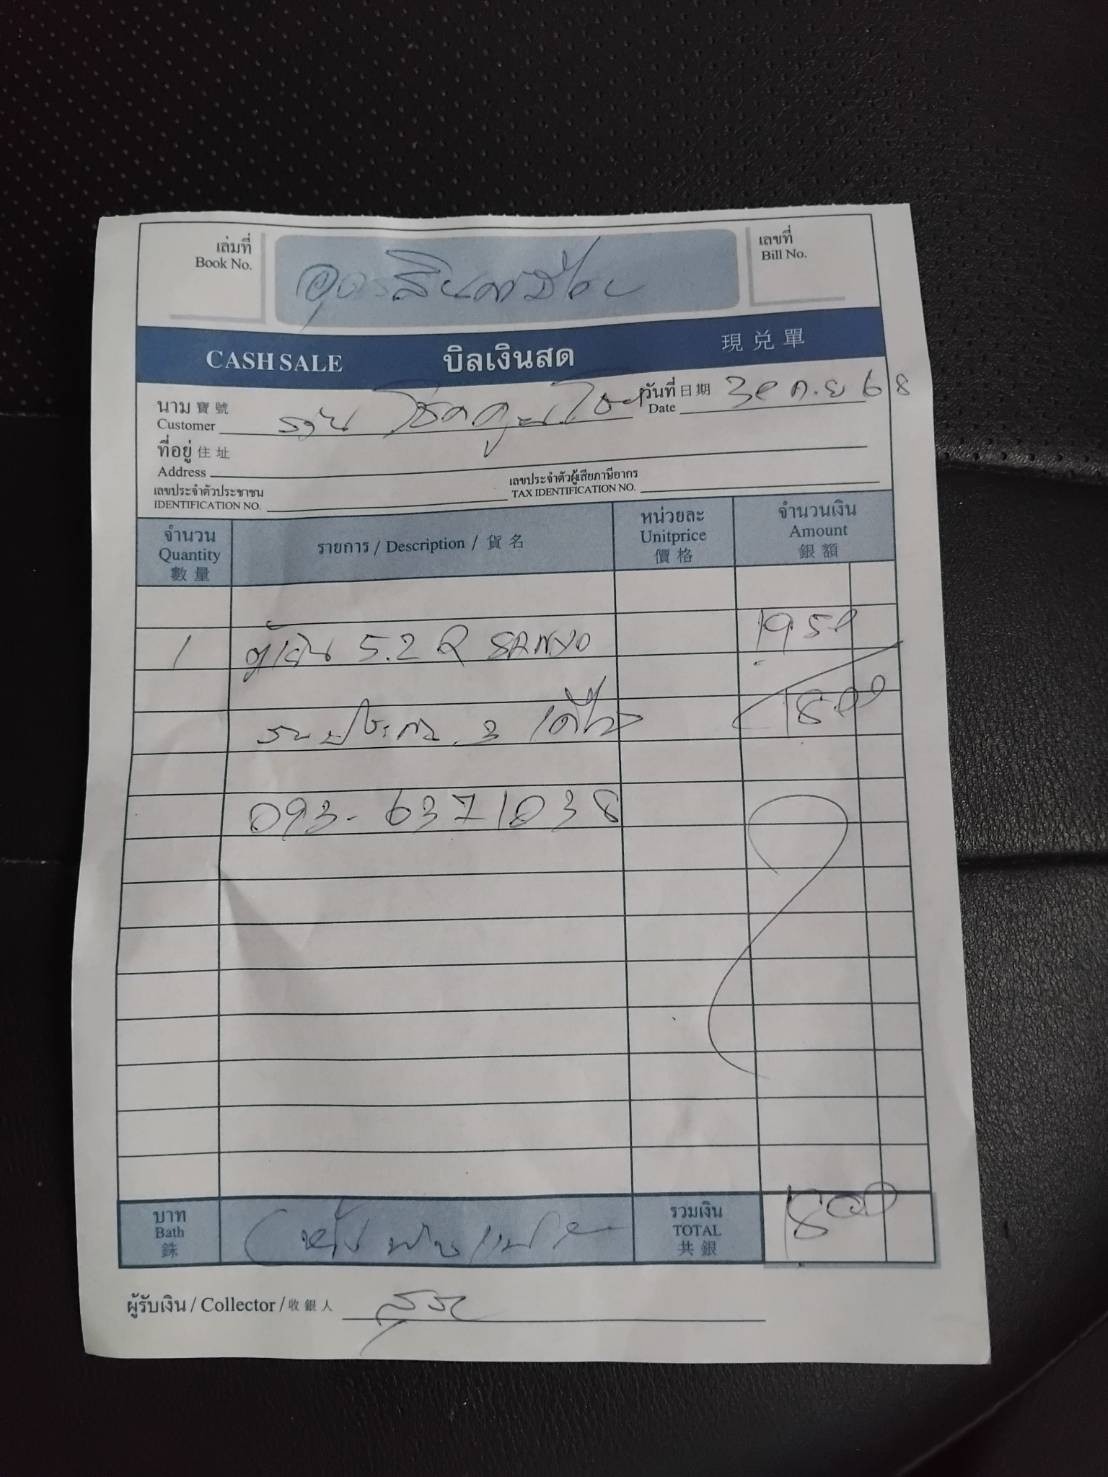 เล่มที่ เลขที่
Book No. Bill No.
CASH SALE บิลเงินสด 現兌單
นาม 寶號 ร้าน วันที่ 日期 30 ก.ย 68
Customer Date
ที่อยู่ 住址
Address
เลขประจำตัวประชาชน เลขประจำตัวผู้เสียภาษีอากร
IDENTIFICATION NO. TAX IDENTIFICATION NO.
จำนวน รายการ / Description / 貨名 หน่วยละ จำนวนเงิน
Quantity Unitprice Amount
數量 價格 銀額
1 ตู้เย็น 5.2 Q SANYO 1950
รับประกัน 3 เดือน 1800
093-6371038
บาท รวมเงิน 1800
Bath TOTAL
銖 共銀
ผู้รับเงิน / Collector / 收銀人